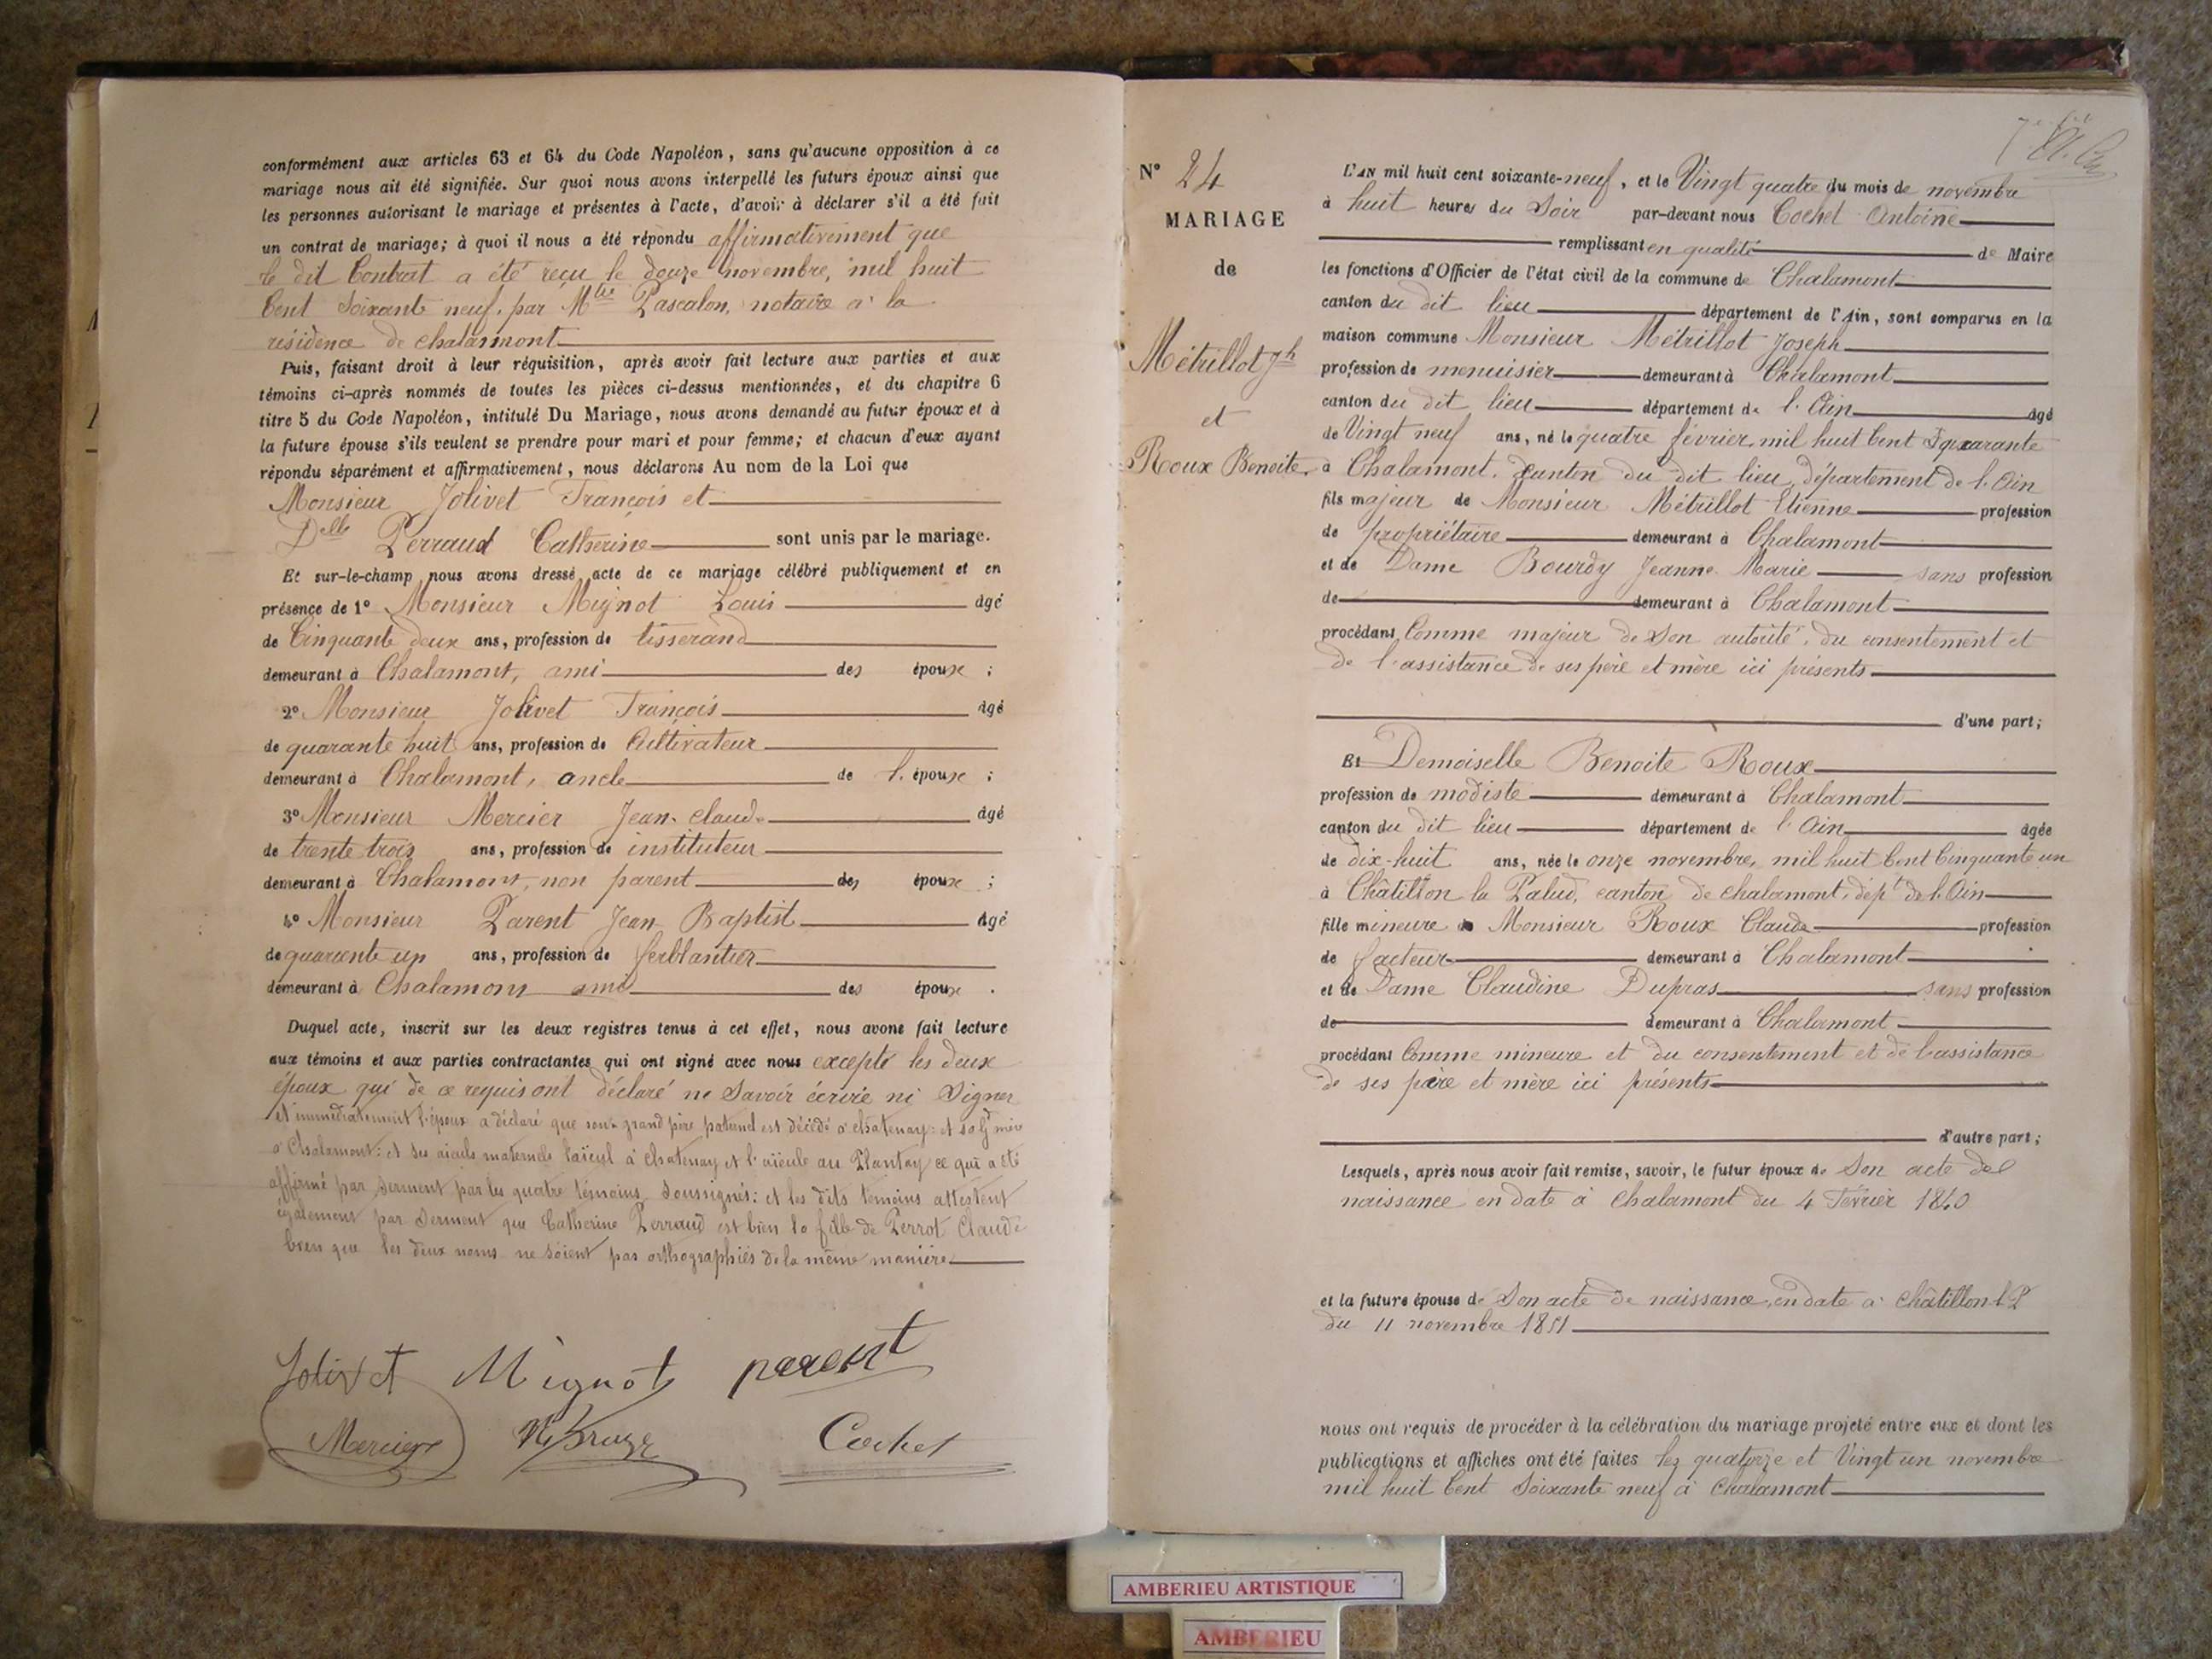 conformément aux articles 63 et 64 du Code Napoléon, sans qu'aucune opposition à ce
mariage nous ait été signifiée. Sur quoi nous avons interpellé les futurs époux ainsi que
les personnes autorisant le mariage et présentes à l'acte, d'avoir à déclarer s'il a été fait
un contrat de mariage; à quoi il nous a été répondu affirmativement que
le dit Contrat a été reçu le douze novembre, mil huit
Cent Soixante neuf. par Mtre Pascalon, notaire à la
résidence de chalamont
Puis, faisant droit à leur réquisition, après avoir fait lecture aux parties et aux
témoins ci-après nommés de toutes les pièces ci-dessus mentionnées, et du chapitre 6
titre 5 du Code Napoléon, intitulé Du Mariage, nous avons demandé au futur époux et à
la future épouse s'ils veulent se prendre pour mari et pour femme; et chacun d'eux ayant
répondu séparément et affirmativement, nous déclarons Au nom de la Loi que
Monsieur Jolivet François et
Delle Perraud Catherine sont unis par le mariage.
Et sur-le-champ nous avons dressé acte de ce mariage célébré publiquement et en
présence de 1º Monsieur Mignot Louis âgé
de Cinquante deux ans, profession de tisserand
demeurant à Chalamont, ami des époux ;
2º Monsieur Jolivet François âgé
de quarante huit ans, profession de Cultivateur
demeurant à Chalamont, oncle de l. époux ;
3º Monsieur Mercier Jean-Claude âgé
de trente trois ans, profession de instituteur
demeurant à Chalamont, non parent des époux ;
4º Monsieur Parent Jean Baptist âgé
de quarante un ans, profession de ferblantier
demeurant à Chalamont ami des époux .
Duquel acte, inscrit sur les deux registres tenus à cet effet, nous avons fait lecture
aux témoins et aux parties contractantes qui ont signé avec nous excepté les deux
époux qui de ce requis ont déclaré ne Savoir écrire ni Signer
et immédiatement l'époux a déclaré que son grand père paternel est décédé à chatenay: et sa gd mère
à Chalamont: et ses aïeuls maternels l'aïeul à chatenay et l'aïeule au Plantay ce qui a été
affirmé par serment par les quatre témoins soussignés: et les dits témoins attestent
également par serment que Catherine Perraud est bien la fille de Perrot Claude
bien que les deux noms ne soient pas orthographiés de la même manière
Jolivet Mignot parent
Mercier Cochet
Nº 24
MARIAGE
de
Métrillot Jh
et
Roux Benoite
L'AN mil huit cent soixante-neuf, et le Vingt quatre du mois de novembre
à huit heures du Soir par-devant nous Cochet Antoine
remplissant en qualité de Maire
les fonctions d'Officier de l'état civil de la commune de Chalamont
canton du dit lieu département de l'Ain, sont comparus en la
maison commune Monsieur Métrillot Joseph
profession de menuisier demeurant à Chalamont
canton du dit lieu département de l. Ain âgé
de Vingt neuf ans, né le quatre février mil huit Cent quarante
à Chalamont. Canton du dit lieu, département de l. Ain
fils majeur de Monsieur Métrillot Etienne profession
de propriétaire demeurant à Chalamont
et de Dame Bourdy Jeanne Marie sans profession
de demeurant à Chalamont
procédant Comme majeur de Son autorité, du consentement et
de l'assistance de ses père et mère ici présents
d'une part;
Et Demoiselle Benoite Roux
profession de modiste demeurant à Chalamont
canton du dit lieu département de l. Ain âgée
de dix-huit ans, née le onze novembre, mil huit Cent Cinquante un
à Châtillon la Palud, canton de chalamont, dépt de l. Ain
fille mineure de Monsieur Roux Claude profession
de facteur demeurant à Chalamont
et de Dame Claudine Dupras sans profession
de demeurant à Chalamont
procédant Comme mineure et du consentement et de l'assistance
de ses père et mère ici présents
d'autre part;
Lesquels, après nous avoir fait remise, savoir, le futur époux de Son acte de
naissance en date à Chalamont du 4 Février 1840
et la future épouse de Son acte de naissance, en date à Châtillon l. P
du 11 novembre 1851
nous ont requis de procéder à la célébration du mariage projeté entre eux et dont les
publications et affiches ont été faites les quatorze et Vingt un novembre
mil huit Cent Soixante neuf à Chalamont
AMBERIEU ARTISTIQUE
AMBERIEU